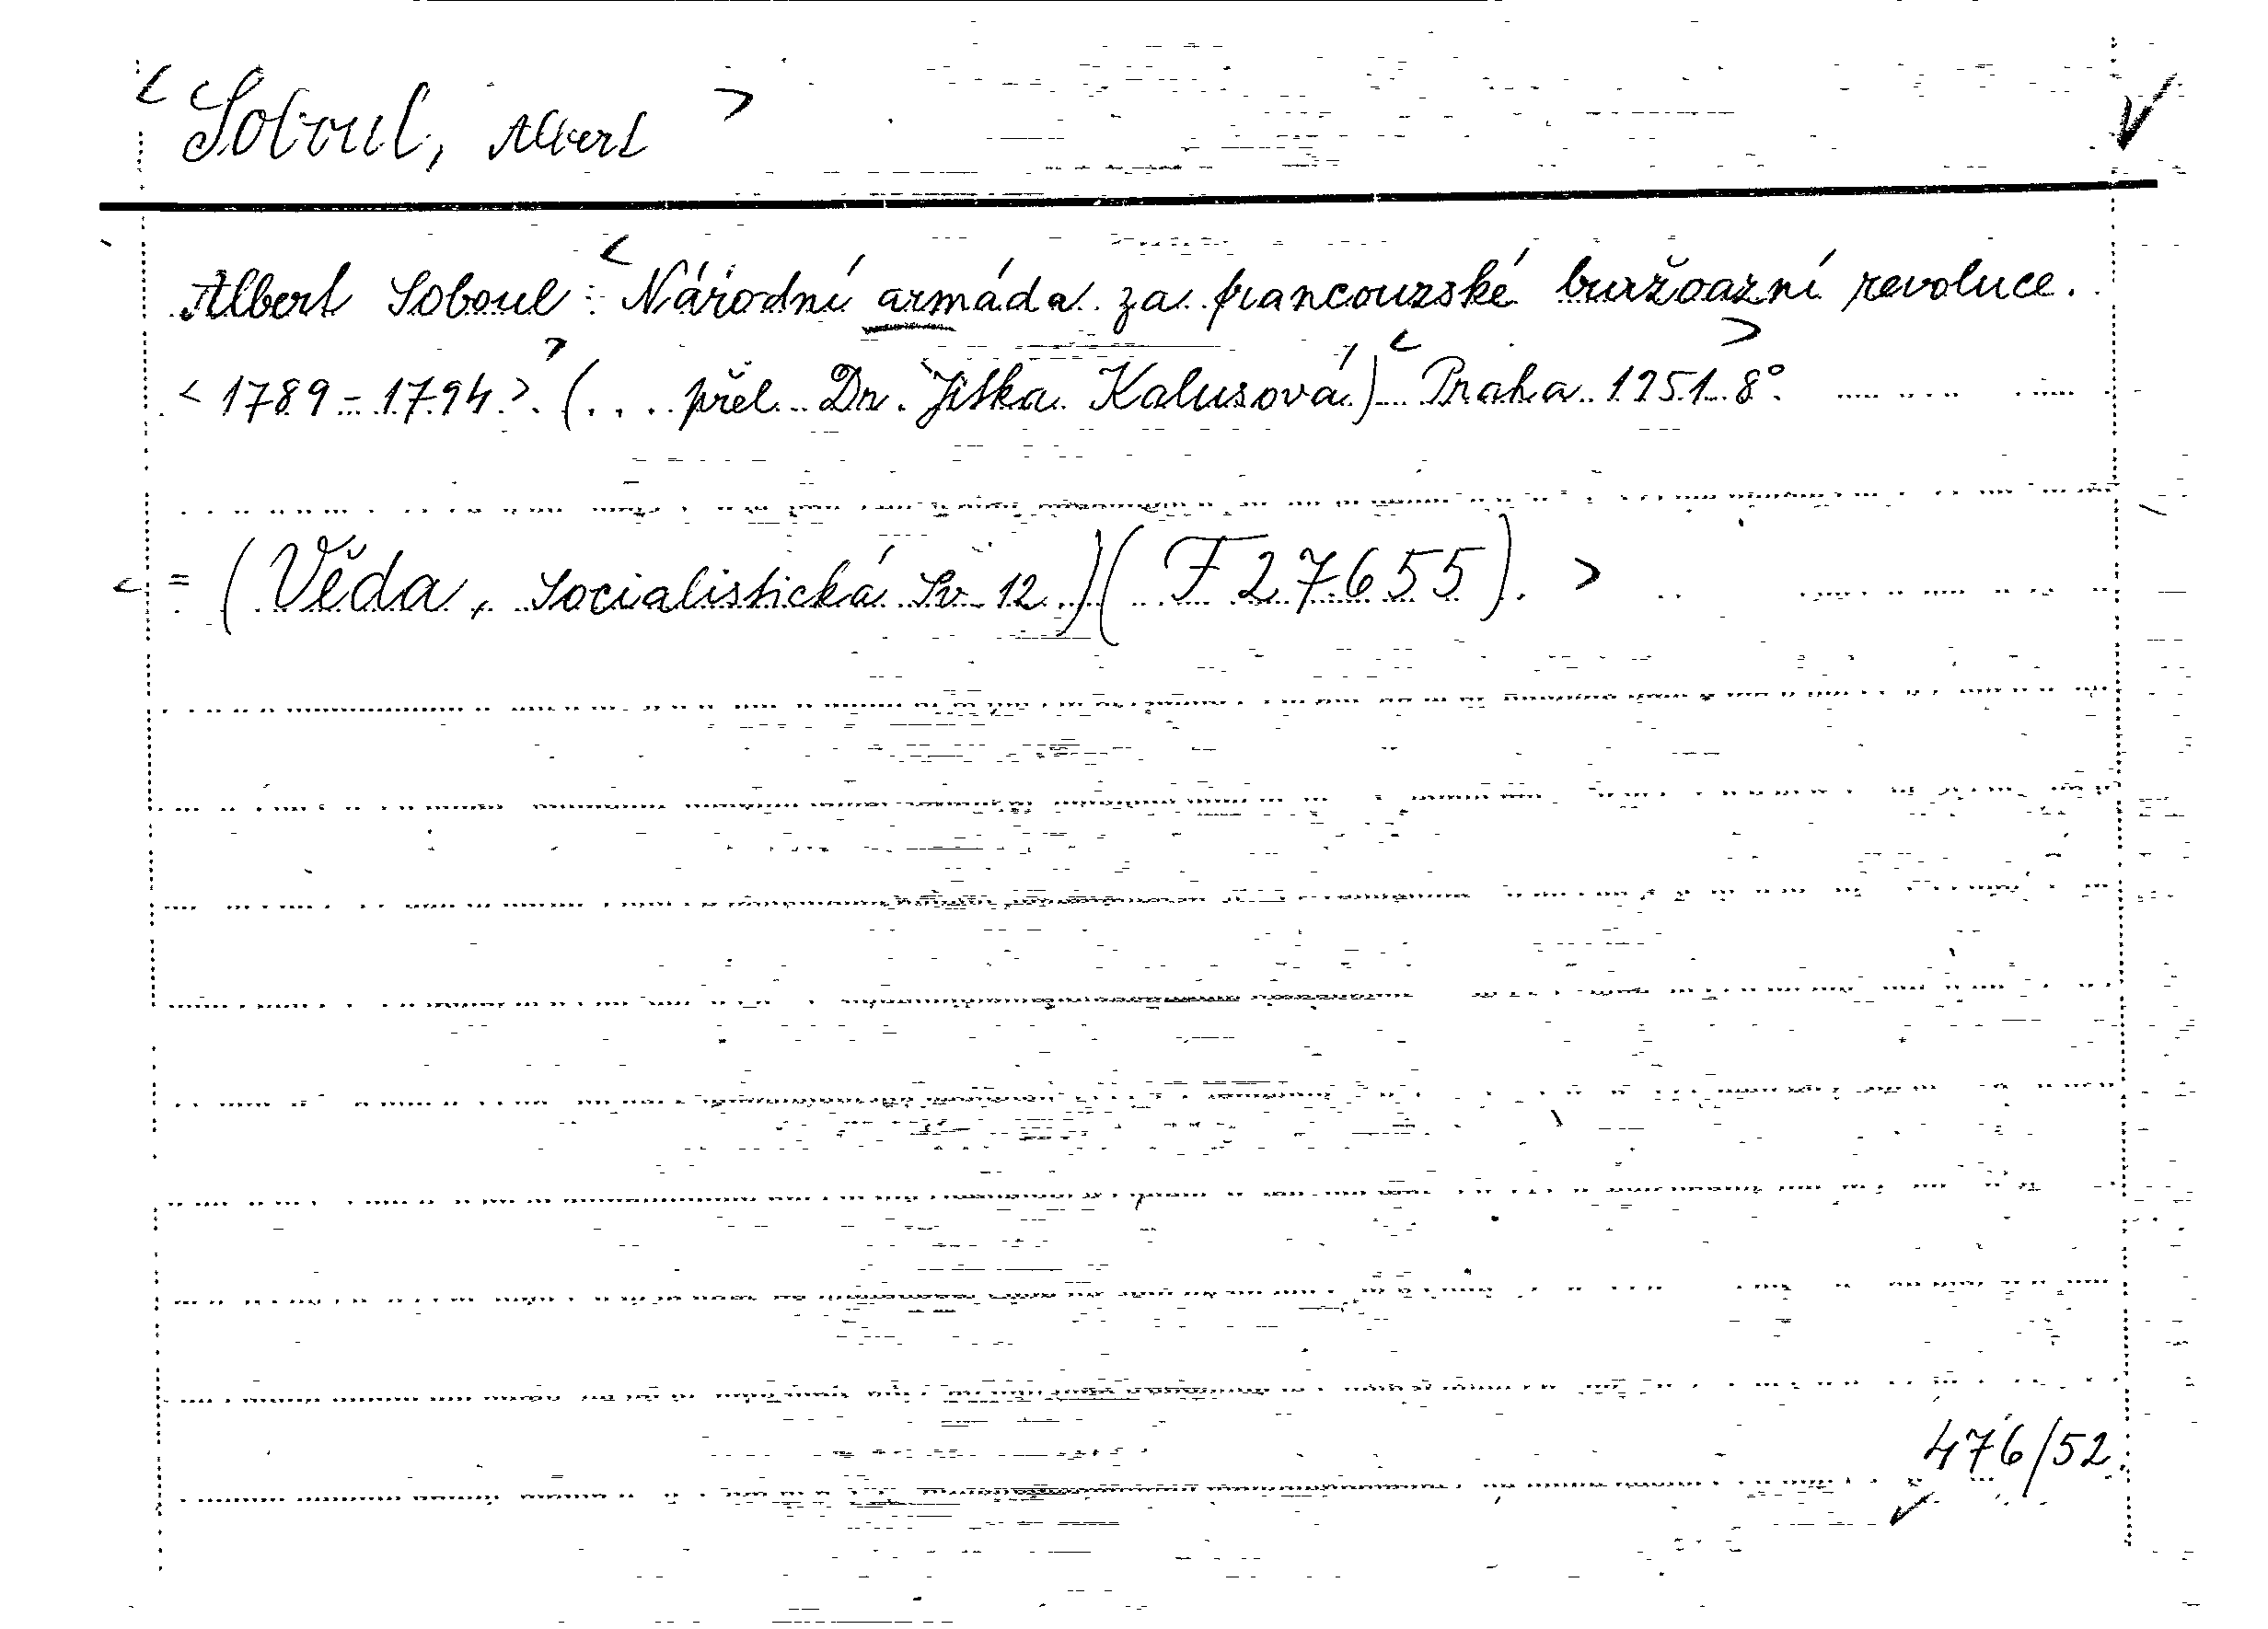 < Soboul, Albert >
Albert Soboul: < Národní armáda za francouzské buržoazní revoluce.
< 1789 - 1794 > > (... přel. Dr. Jitka Kalusová) < Praha 1951 8° >
< = (Věda, Socialistická Sv 12)( F 27655). >
476/52